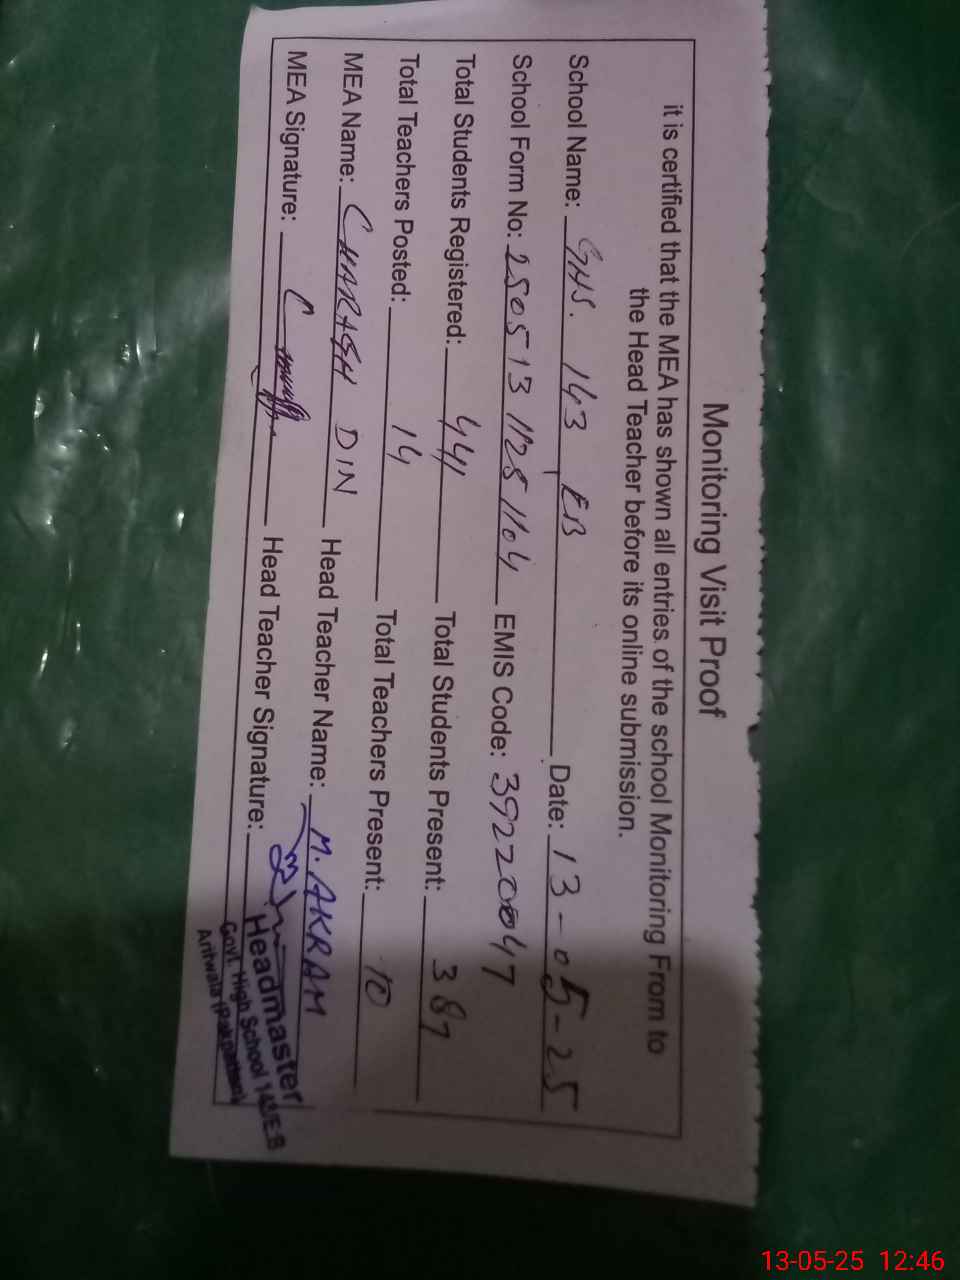 Monitoring Visit Proof
it is certified that the MEA has shown all entries of the school Monitoring From to
the Head Teacher before its online submission.
School Name: GHS. 143 EB Date: 13-05-25
School Form No: 250513 1128 1104 EMIS Code: 39220047
Total Students Registered: 441 Total Students Present: 387
Total Teachers Posted: 14 Total Teachers Present: 10
MEA Name: CHARAGH DIN Head Teacher Name: M. AKRAM
MEA Signature: Head Teacher Signature:
Headmaster
Govt. High School 143/E.B
Arifwala (Pakpattan)
13-05-25 12:46